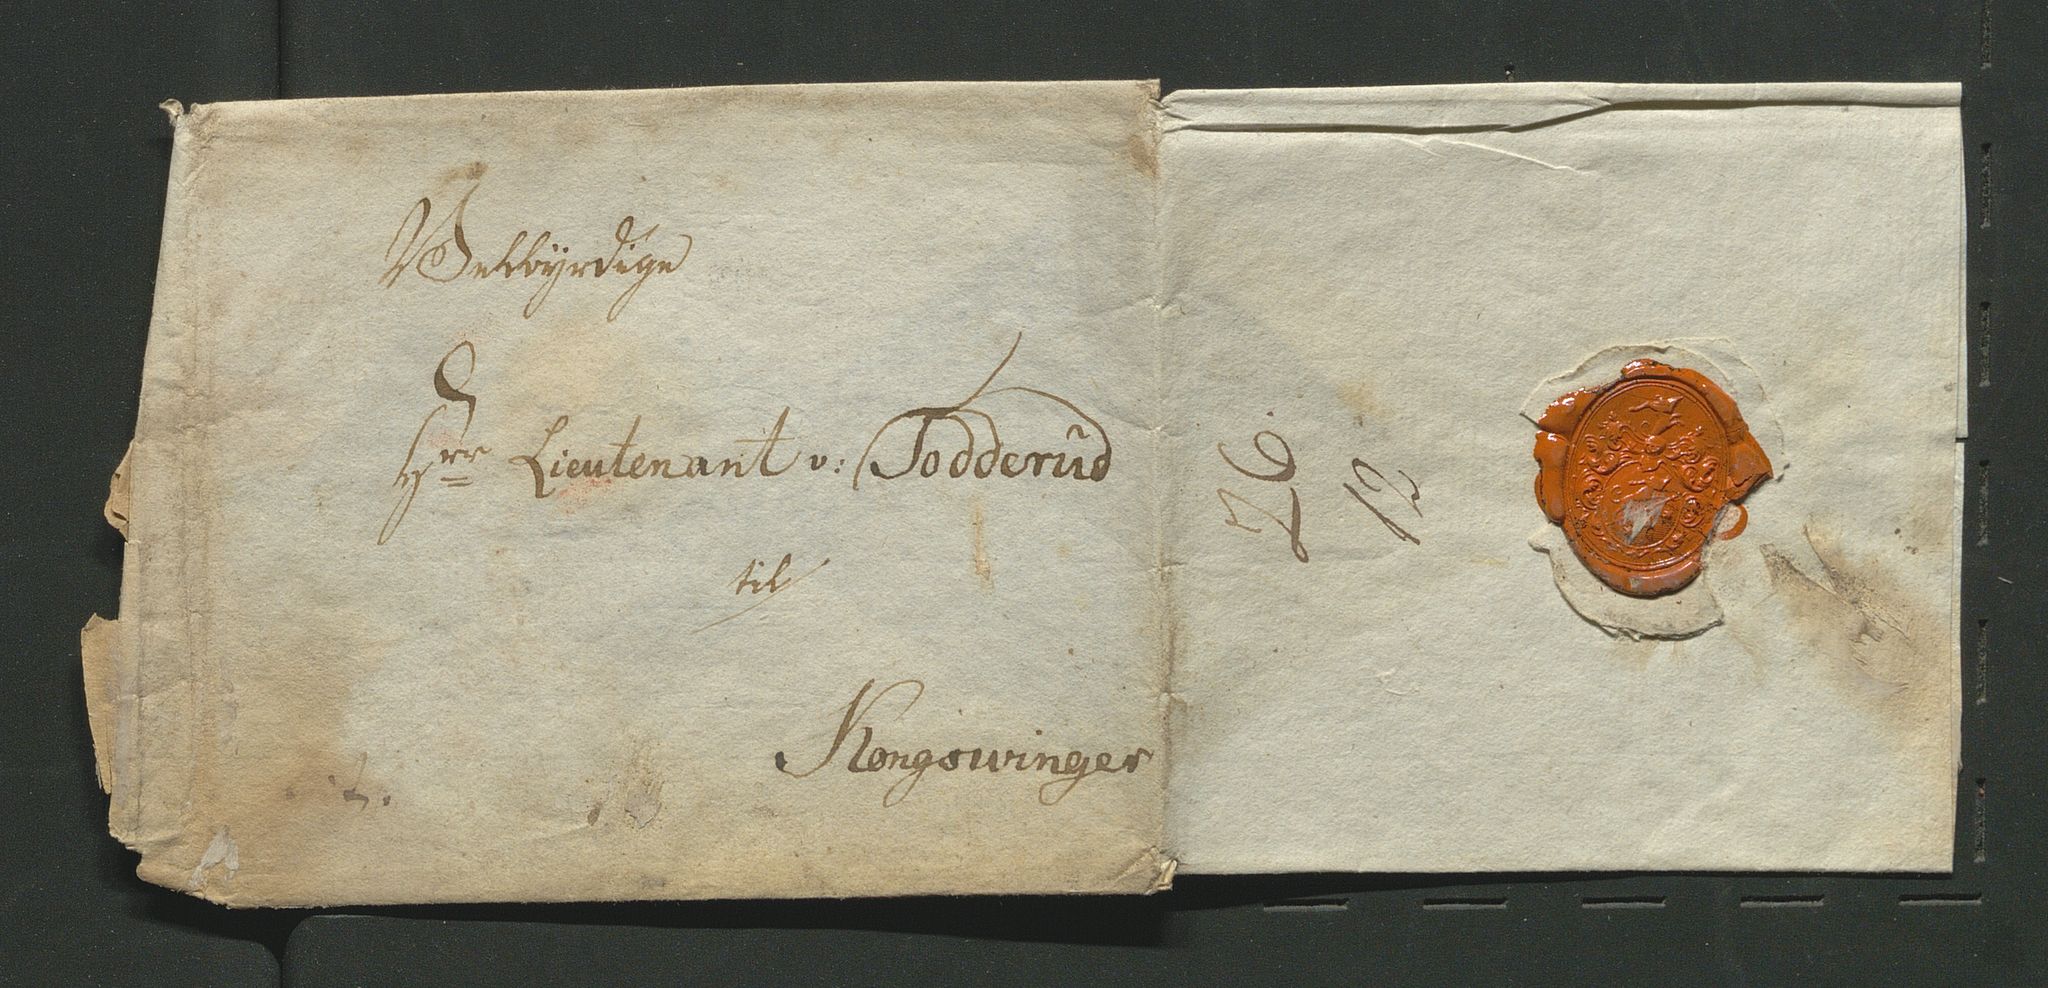 Velbÿrdige
Hrr Lieutenant v: Todderŭd
til
Kongswinger
26
12